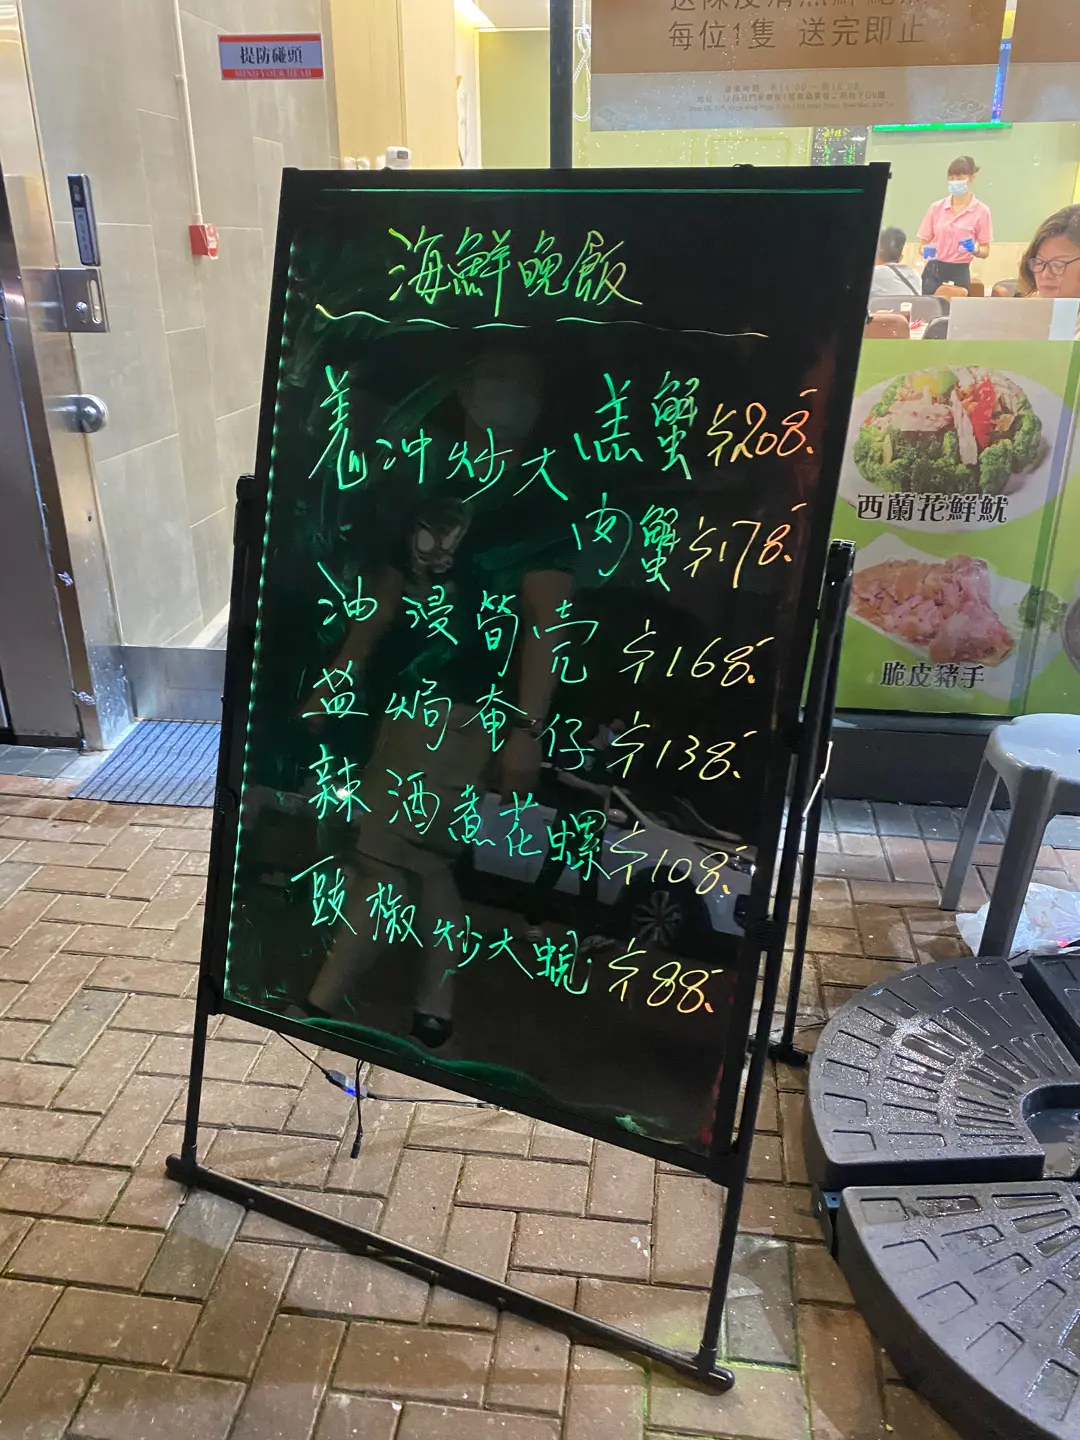 提防碰頭
MIND YOUR HEAD
每位1隻 送完即止
海鮮晚飯
羌冲炒大羔蟹 $208.-
肉蟹 $178.-
油浸筍壳 $168.-
盐焗奄仔 $138.-
辣酒煮花螺 $108.-
豉椒炒大蜆 $88.-
西蘭花鮮魷
脆皮豬手